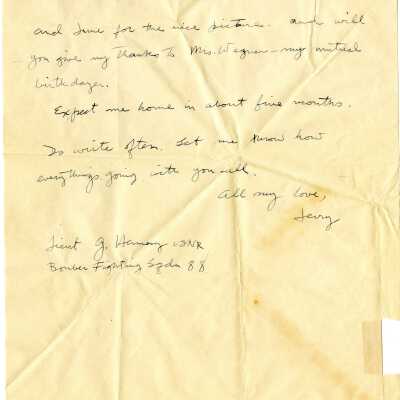 and June for the nice picture. And will
you give my thanks to Mrs. Wegner – my mutual
birthdayer.
Expect me home in about five months.
Do write often. Let me know how
everythings going with you all.
All my love,
Jerry
Lieut G. USNR
Bomber Fighting Sqdn 88